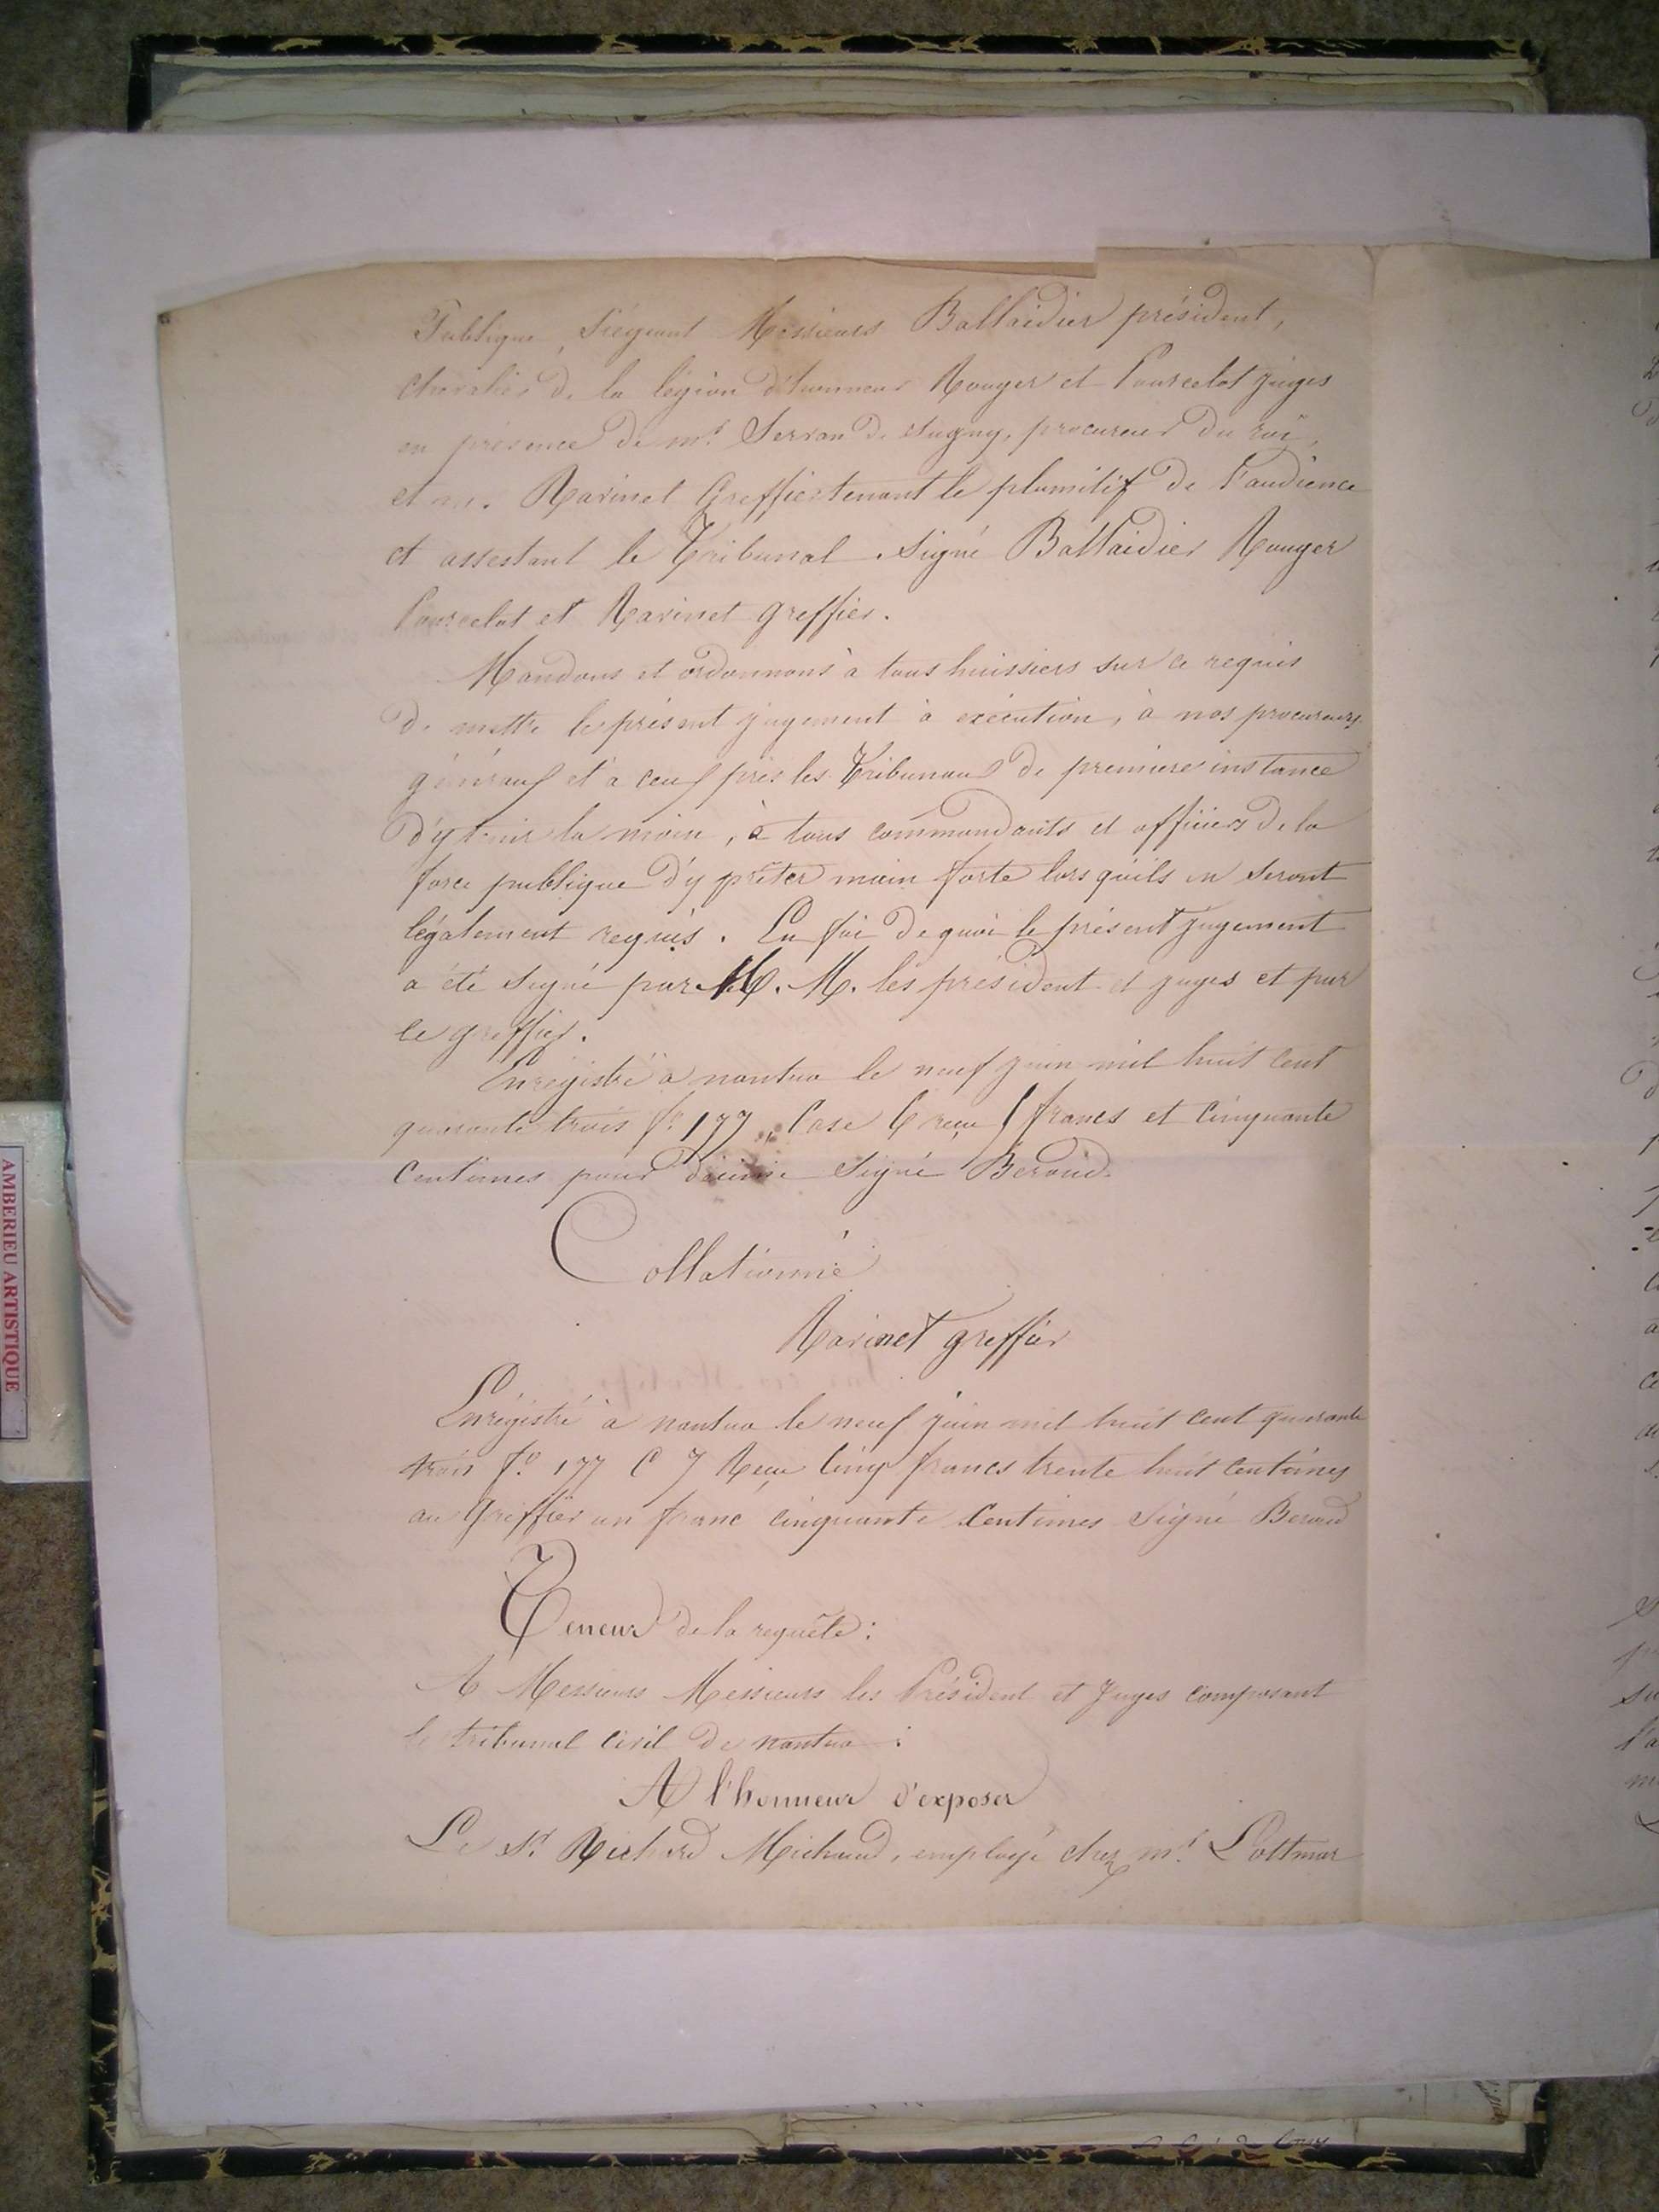 Publique, Siégeant Messieurs Ballaidier président,
chevalier de la légion d'honneur Rouyer et Pourcelot juges
en présence de mr. Servan de Sugny, procureur du roi,
et m. Ravinet Greffier tenant le plumitif de l'audience
et assestant le Tribunal. Signé Ballaidier Rouyer
Pourcelot et Ravinet greffier.
Mandons et ordonnons à tous huissiers sur ce requis
de mettre le présent jugement à exécution, à nos procureurs
généraux et à ceux près les Tribunaux de première instance
d'y tenir la main, à tous commandants et officiers de la
force publique d'y prêter main forte lorsqu'ils en seront
légalement requis. En foi de quoi le présent jugement
a été signé par M. M. les président et juges et par
le greffier.
Enregistré à nantua le neuf juin mil huit cent
quarante trois fo. 177, Case 6 reçu 5 francs et Cinquante
Centimes pour décime Signé Beroud.
Collationné
Ravinet greffier
Enregistré à nantua le neuf juin mil huit cent quarante
trois fo. 177 C 7 Reçu Cinq francs trente huit Centimes
au Greffier un franc cinquante Centimes Signé Beroud
Teneur de la requête :
A Messieurs Messieurs les Président et Juges composant
le tribunal Civil de nantua :
A l'honneur d'exposer
Le Sr. Richard Michaud, employé chez mr.
AMBERIEU ARTISTIQUE